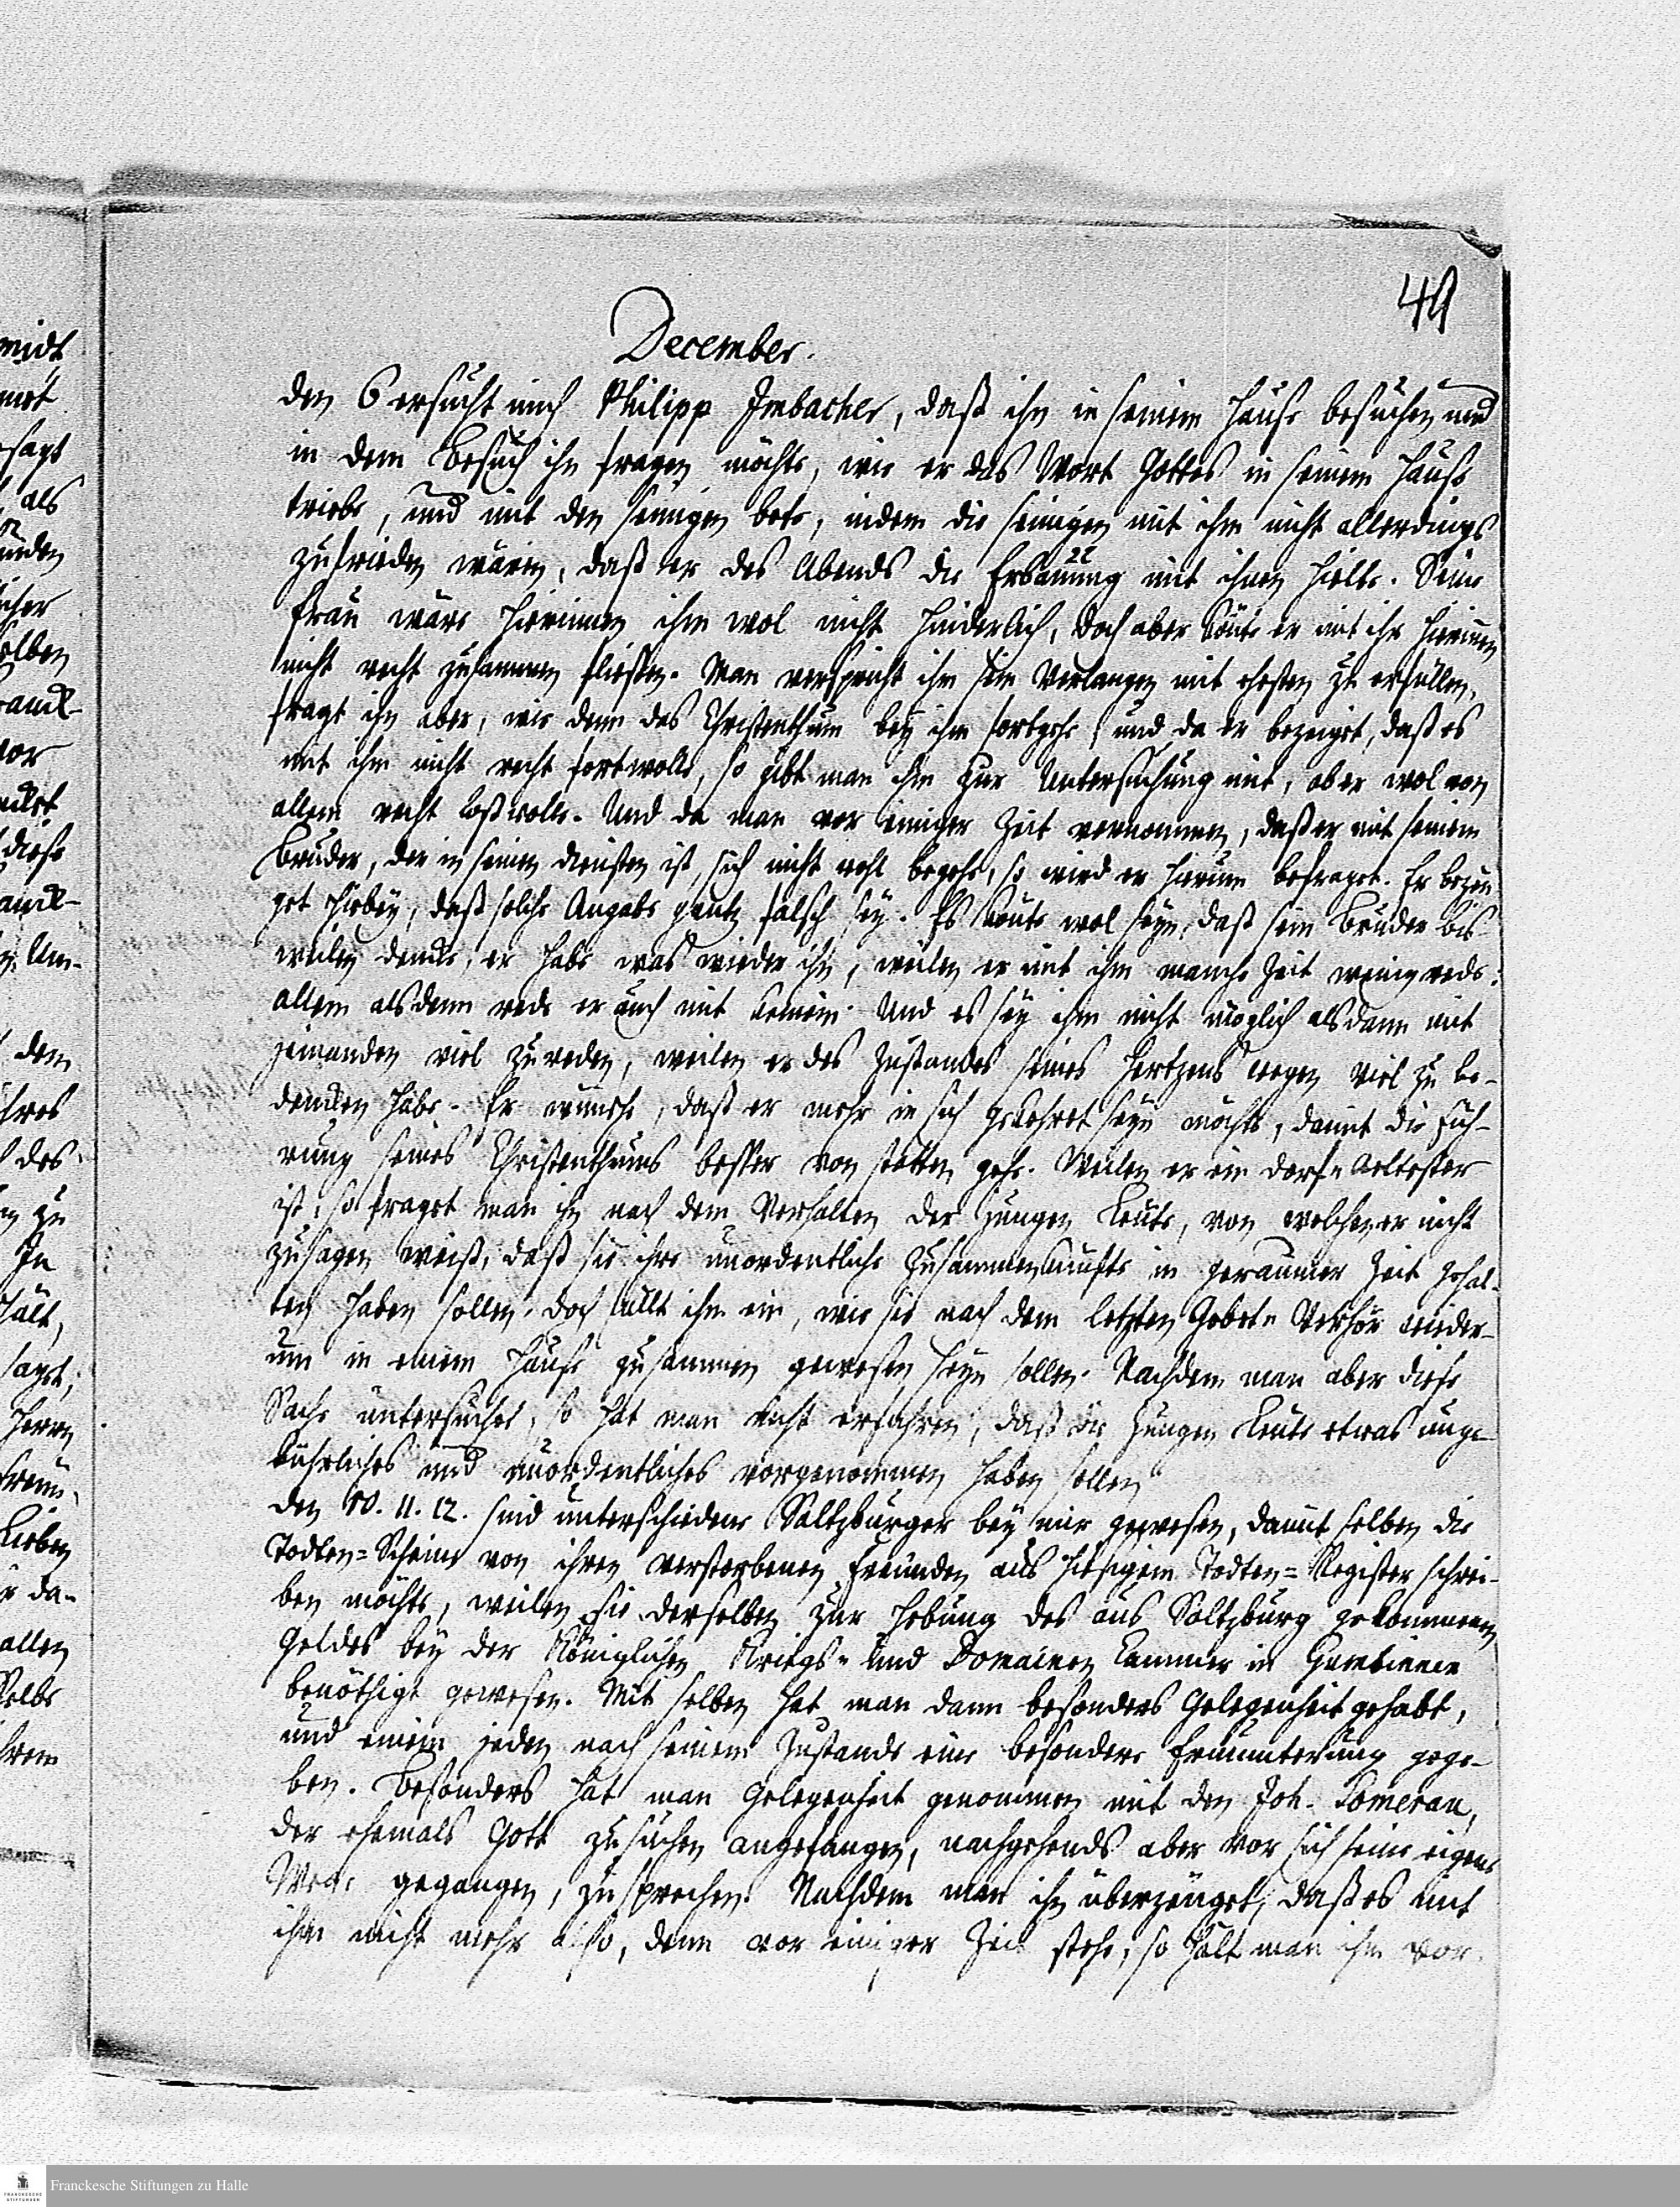 49
December.
den 6 ersucht mich Philipp Imbacher, daß ihn in seinem Hause besuchen und
in dem Besuch ihn fragen möchte, wie er das Wort Gottes in seinem Hause
triebe, und mit den seinigen bete, indem die seinigen mit ihm nicht allerdings
zufrieden wären, daß er des Abends die Erbauung mit ihnen hielte. Seine
Frau wäre hierinnen ihm wol nicht hinderlich, doch aber könte er mit ihr hierinnen
nicht recht zusammen fließen. Man verspricht ihm sein Verlangen mit ehesten zu erfüllen,
fragt ihn aber, wie denn das Christenthum bey ihm fortgehe, und da er bezeiget, daß es
mit ihm nicht recht fort wolle, so gibt man ihm zur Untersuchung mit, ob er wol von
allem recht loß wolle. Und da man vor einiger Zeit vernommen, daß er mit seinem
Bruder, der in seinen Diensten ist, sich nicht wohl begehe, so wird er hierum befraget. Er bezeu-
get hiebey, daß solche Angabe gantz falsch sey. Es könte wol seyn, daß sein Bruder bis-
weilen dencke, er habe was wieder ihn, weilen er mit ihm manche Zeit wenig rede:
allein alsdenn rede er auch mit keinem. Und es sey ihm nicht möglich alsdann mit
jemanden viel zu reden, weilen er des Zustandes seines Hertzens wegen viel zu be-
dencken habe. Er wünsche, daß er mehr in sich gekehret seyn möchte, damit die Füh-
rung seines Christenthums besser von statten gehe. Weilen er ein Dorf-Aeltester
ist, so fraget man ihn nach dem Verhalten der jungen Leute, von welchen er nicht
zusagen weiß, daß sie ihre unordentliche Zusammenkünfte in geraumer Zeit gehal-
ten haben sollen. Doch fällt ihm ein, wie sie nach dem letzten Gebet-Verhör wieder-
um in einem Hause zusammen gewesen seyn sollen. Nachdem man aber diese
Sache untersuchet, so hat man nicht erfahren, daß die jungen Leute etwas unge-
bührliches und unordentliches vorgenommen haben sollen
den 10. 11. 12. sind unterschiedene Saltzburger bey mir gewesen, damit selben die
Todten=Scheine von ihren verstorbenen Freunden aus hiesigem Todten=Register schrei-
ben möchte, weilen sie derselben zur Hebung des aus Saltzburg gekommenen
Geldes bey der Königlichen Kriegs- und Domainen Cammer in Gumbinnen
benöthigt gewesen. Mit selben hat man dann besonders Gelegenheit gehabt,
und einem jeden nach seinem Zustande eine besondere Ermunterung gege-
ben. Besonders hat man Gelegenheit genommen mit den Joh. Pomeran,
der ehemals Gott zu suchen angefangen, nachgehends aber vor sich seine eigene
Wege gegangen, zu sprechen. Nachdem man ihn überzeuget, daß es mit
ihm nicht mehr also, denn vor einiger Zeit stehe, so hält man ihm vor
Franckesche Stiftungen zu Halle